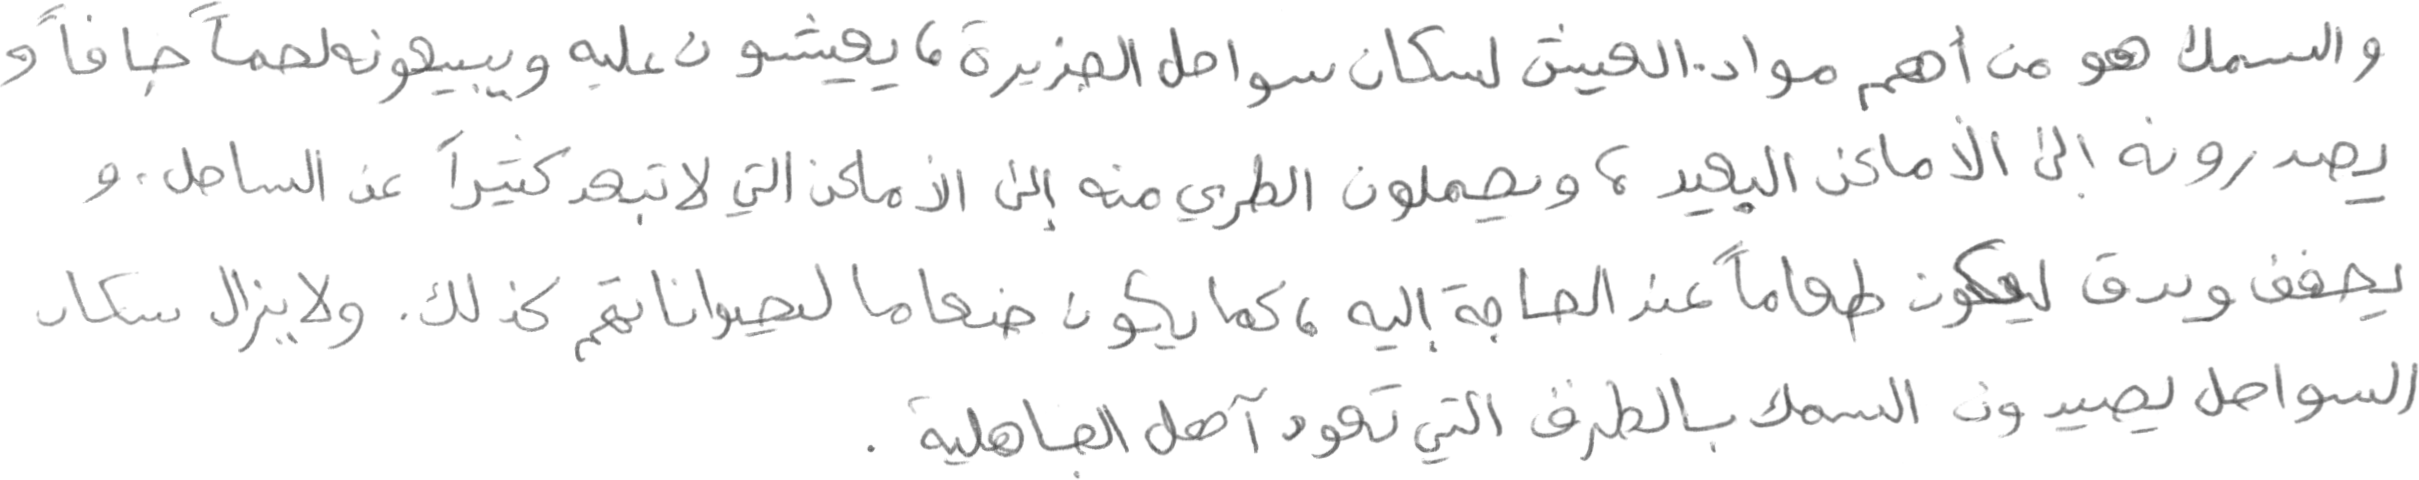 والسمك هو من أهم مواد العيش لسكان سواحل الجزيرة، يعيشون عليه ويبيعونه لحماً جافاً و
يصدرونه إلى الأماكن البعيد، ويحملون الطري منه إلى الأماكن التي لا تبعد كثيراً عن الساحل. و
يجفف ويدق ليكون طعاماً عند الحاجة إليه، كما يكون ضعاما لحيواناتهم كذلك. ولا يزال سكان
السواحل يصيدون السمك بالطرق التي تعود آهل الجاهلية.